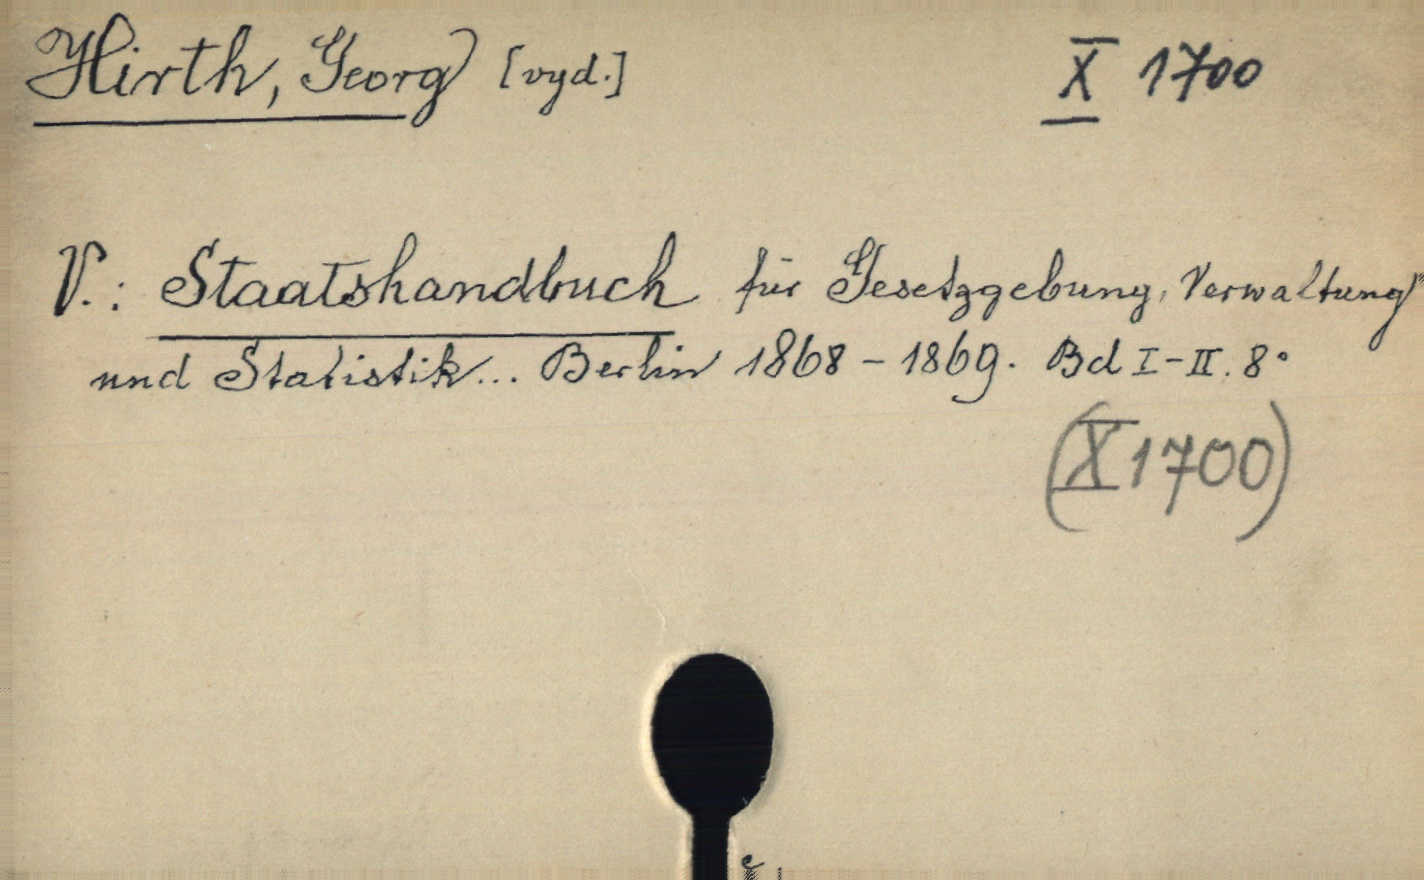 Hirth, Georg [vyd.] X 1700
V.: Staatshandbuch für Gesetzgebung, Verwaltung
und Statistik... Berlin 1868-1869. Bd I-II. 8°
(X 1700)